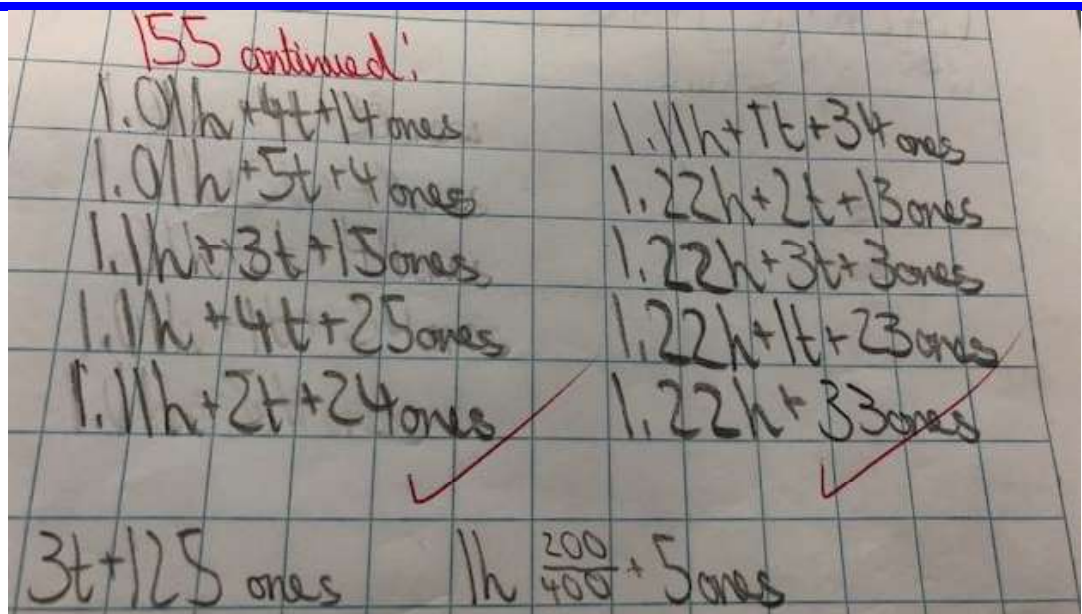 155 continued:
1.01h+4t+14 ones
1.01h+5t+4 ones
1.1h+3t+15 ones
1.1h+4t+25 ones
1.11h+2t+24 ones
1.11h+1t+34 ones
1.22h+2t+13 ones
1.22h+3t+3 ones
1.22h+1t+23 ones
1.22h+33 ones
3t+125 ones
1h 200/400 + 5 ones